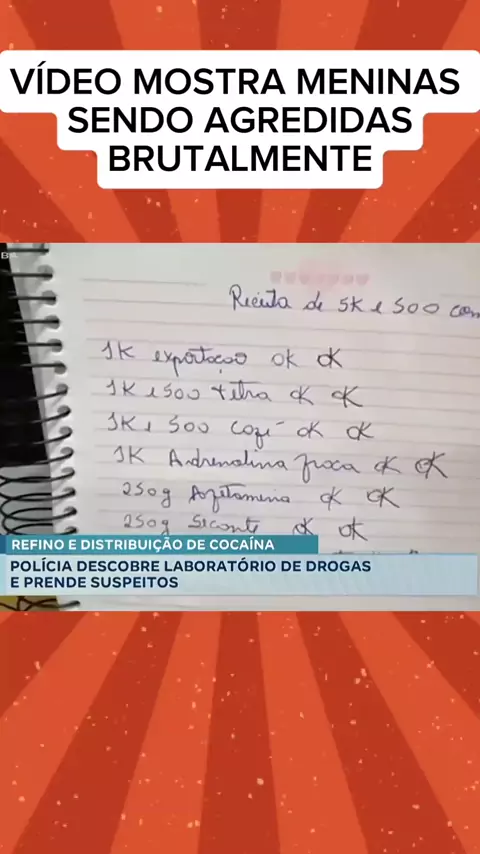 VÍDEO MOSTRA MENINAS
SENDO AGREDIDAS
BRUTALMENTE
Receita de 5K e 500 com
1K exportação OK OK
1K e 500 tetra OK OK
1K e 500 OK OK
1K Adrenalina OK OK
250g OK OK
250g OK OK
REFINO E DISTRIBUIÇÃO DE COCAÍNA
POLÍCIA DESCOBRE LABORATÓRIO DE DROGAS
E PRENDE SUSPEITOS